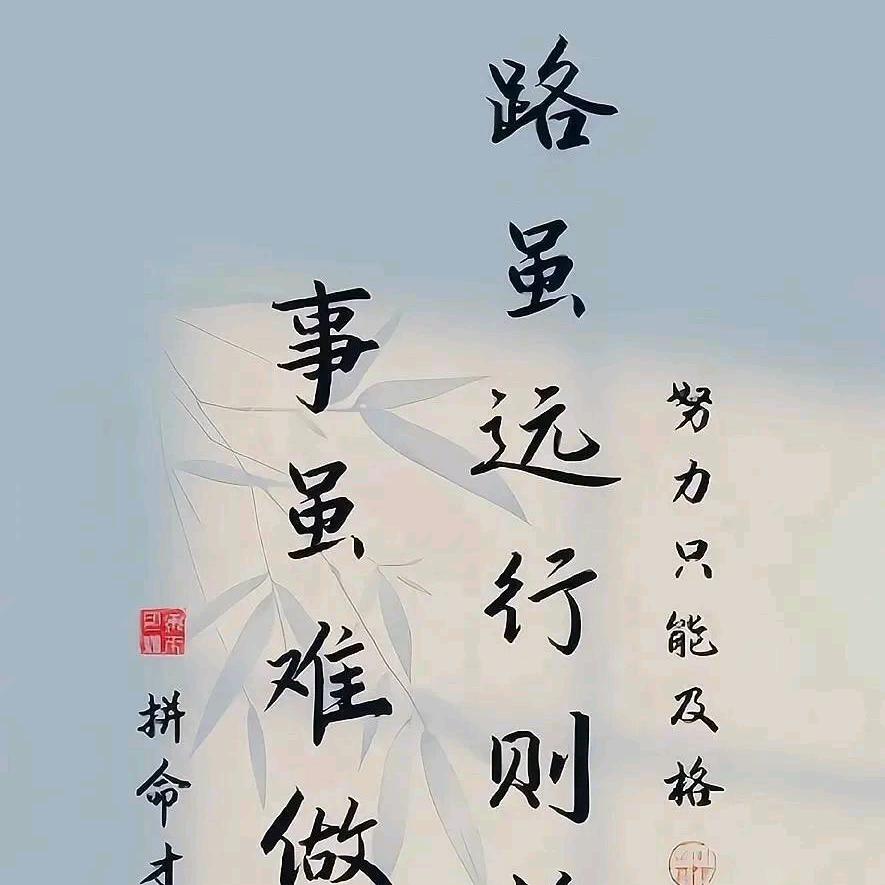 努力只能及格
路虽远行则
事虽难做
拼命才